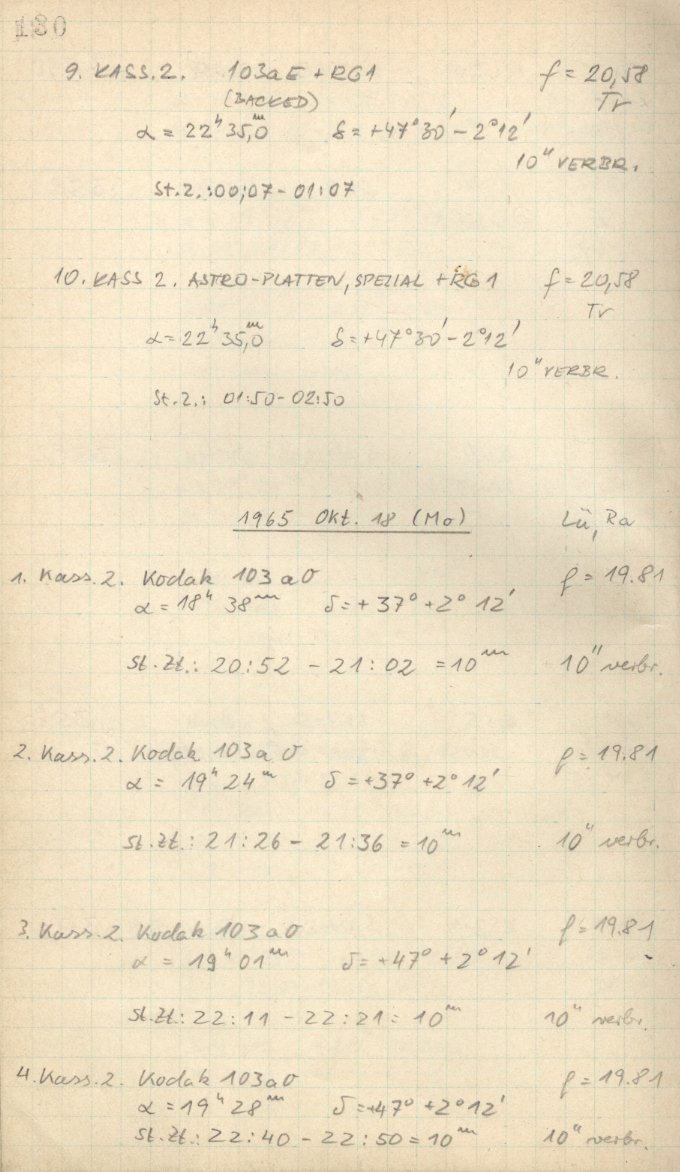 130
9. KASS. 2. 103aE + RG1 f = 20,58
(BACKED) Tr
α = 22ʰ 35,ᵐ0 δ = +47°30′ - 2°12′
10" VERBR.
St. Z. : 00:07 - 01:07
10. KASS 2. ASTRO-PLATTEN, SPEZIAL + RG1 f = 20,58
Tr
α = 22ʰ 35,ᵐ0 δ = +47°30′ - 2°12′
10" VERBR.
St. Z. : 01:50 - 02:50
1965 Okt. 18 (Mo) Lü, Ra
1. Kass. 2. Kodak 103aO f = 19.81
α = 18ʰ 38ᵐ δ = +37° + 2° 12′
St. Zt.: 20:52 - 21:02 = 10ᵐ 10" verbr.
2. Kass. 2. Kodak 103aO f = 19.81
α = 19ʰ 24ᵐ δ = +37° + 2° 12′
St. Zt.: 21:26 - 21:36 = 10ᵐ 10" verbr.
3. Kass. 2. Kodak 103aO f = 19.81
α = 19ʰ 01ᵐ δ = +47° + 2° 12′
St. Zt: 22:11 - 22:21 = 10ᵐ 10" verbr.
4. Kass. 2. Kodak 103aO f = 19.81
α = 19ʰ 28ᵐ δ = +47° + 2° 12′
St. Zt.: 22:40 - 22:50 = 10ᵐ 10" verbr.